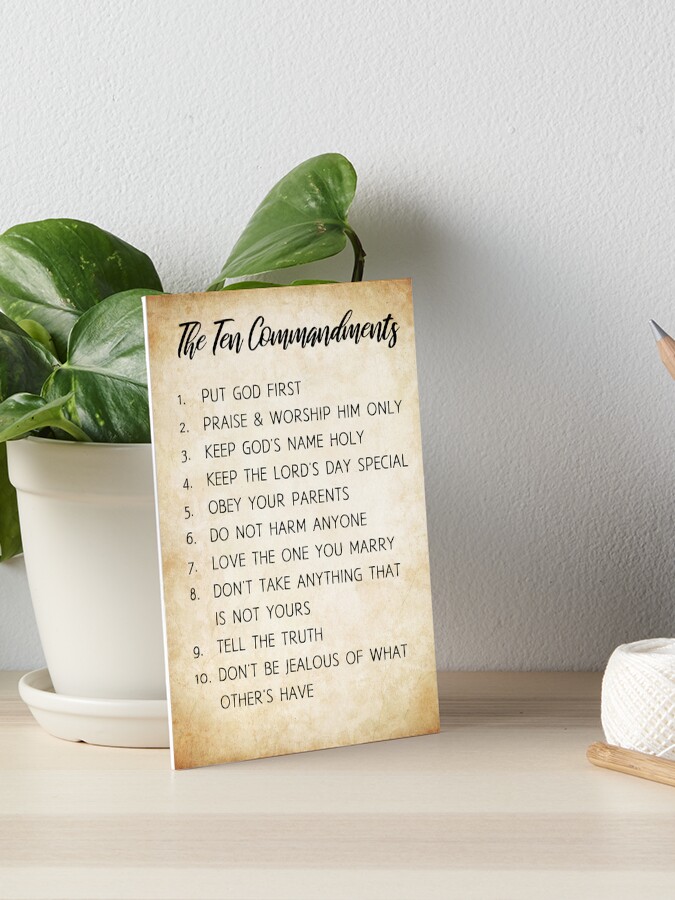 The Ten Commandments
1. PUT GOD FIRST
2. PRAISE & WORSHIP HIM ONLY
3. KEEP GOD'S NAME HOLY
4. KEEP THE LORD'S DAY SPECIAL
5. OBEY YOUR PARENTS
6. DO NOT HARM ANYONE
7. LOVE THE ONE YOU MARRY
8. DON'T TAKE ANYTHING THAT
IS NOT YOURS
9. TELL THE TRUTH
10. DON'T BE JEALOUS OF WHAT
OTHER'S HAVE